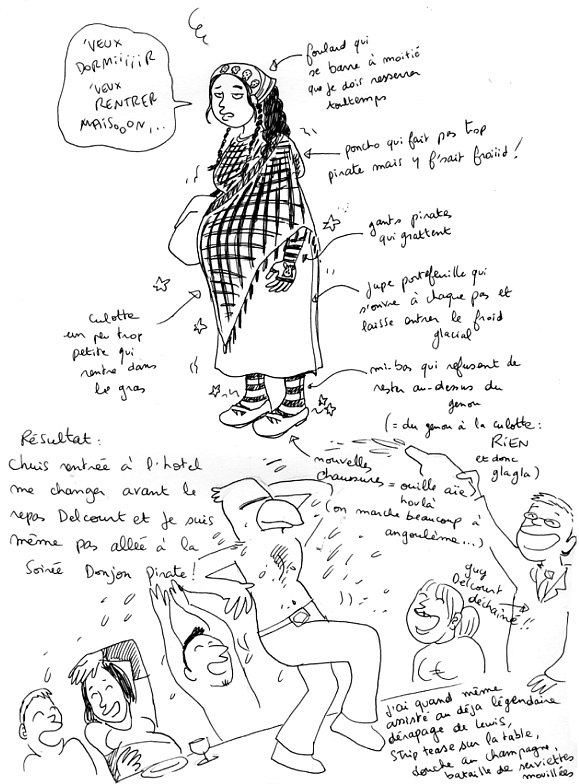 'VEUX
DORMiiiiiR
'VEUX
RENTRER
MAiSOooN,...
foulard qui
se barre à moitié
que je dois resserrer
toultemps
poncho qui fait pas trop
pirate mais y f'sait fraiiid!
gants pirates
qui grattent
jupe portefeuille qui
s'ouvre à chaque pas et
laisse entrer le froid
glacial
culotte
un peu trop
petite qui
rentre dans
le gras
mi-bas qui refusent de
rester au-dessus du
genou
(= du genou à la culotte:
RiEN
et donc
glagla)
nouvelles
chaussures = ouille aïe
houlà
(on marche beaucoup à
angoulême...)
Résultat:
Chuis rentrée à l'hotel
me changer avant le
repas Delcourt et je suis
même pas allée à la
Soirée Donjon Pirate!
guy
Delcourt
déchaîné!!
j'ai quand même
assisté au déjà légendaire
dérapage de Lewis,
Strip tease sur la table,
douche au champagne,
bataille de serviettes
mouillées